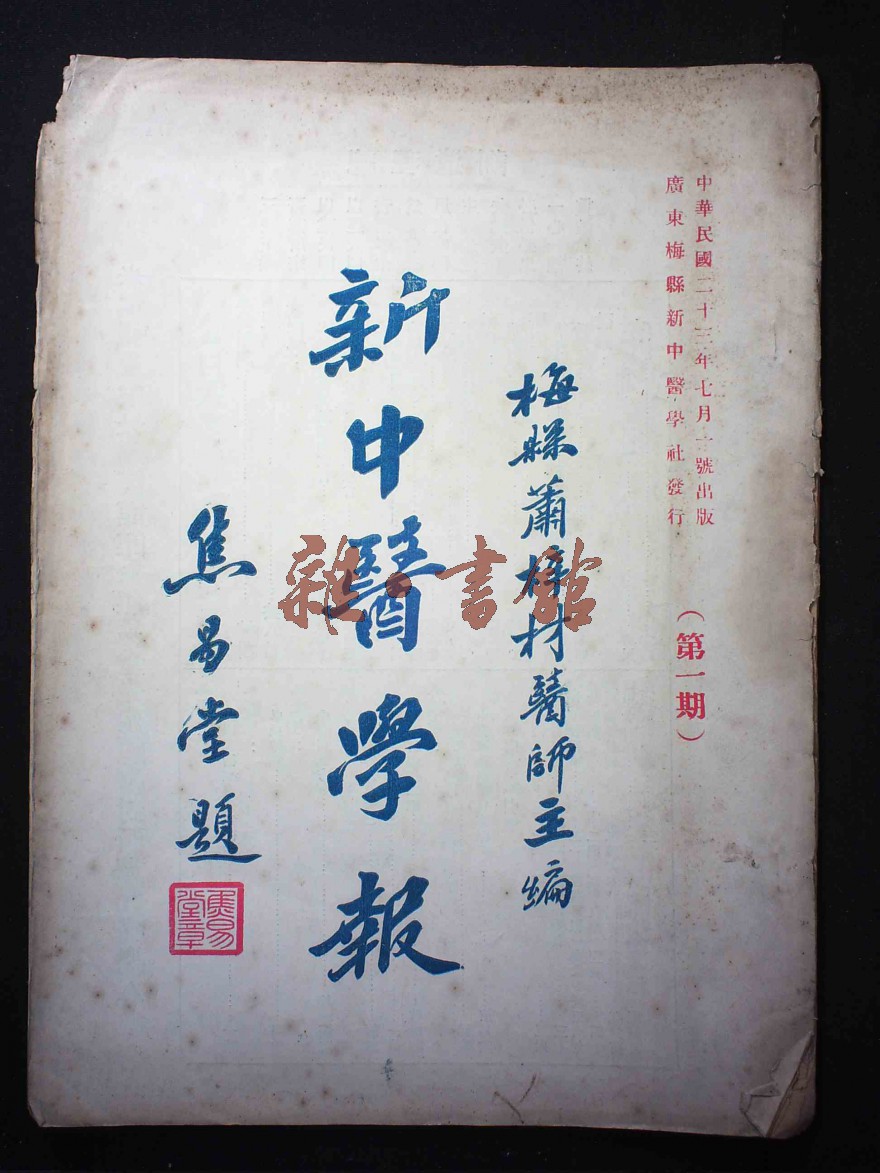 中華民國二十三年七月一號出版
廣東梅縣新中醫學社發行
(第一期)
梅縣蕭梓材醫師主編
新中醫學報
焦易堂題
焦易堂章
雜·書館